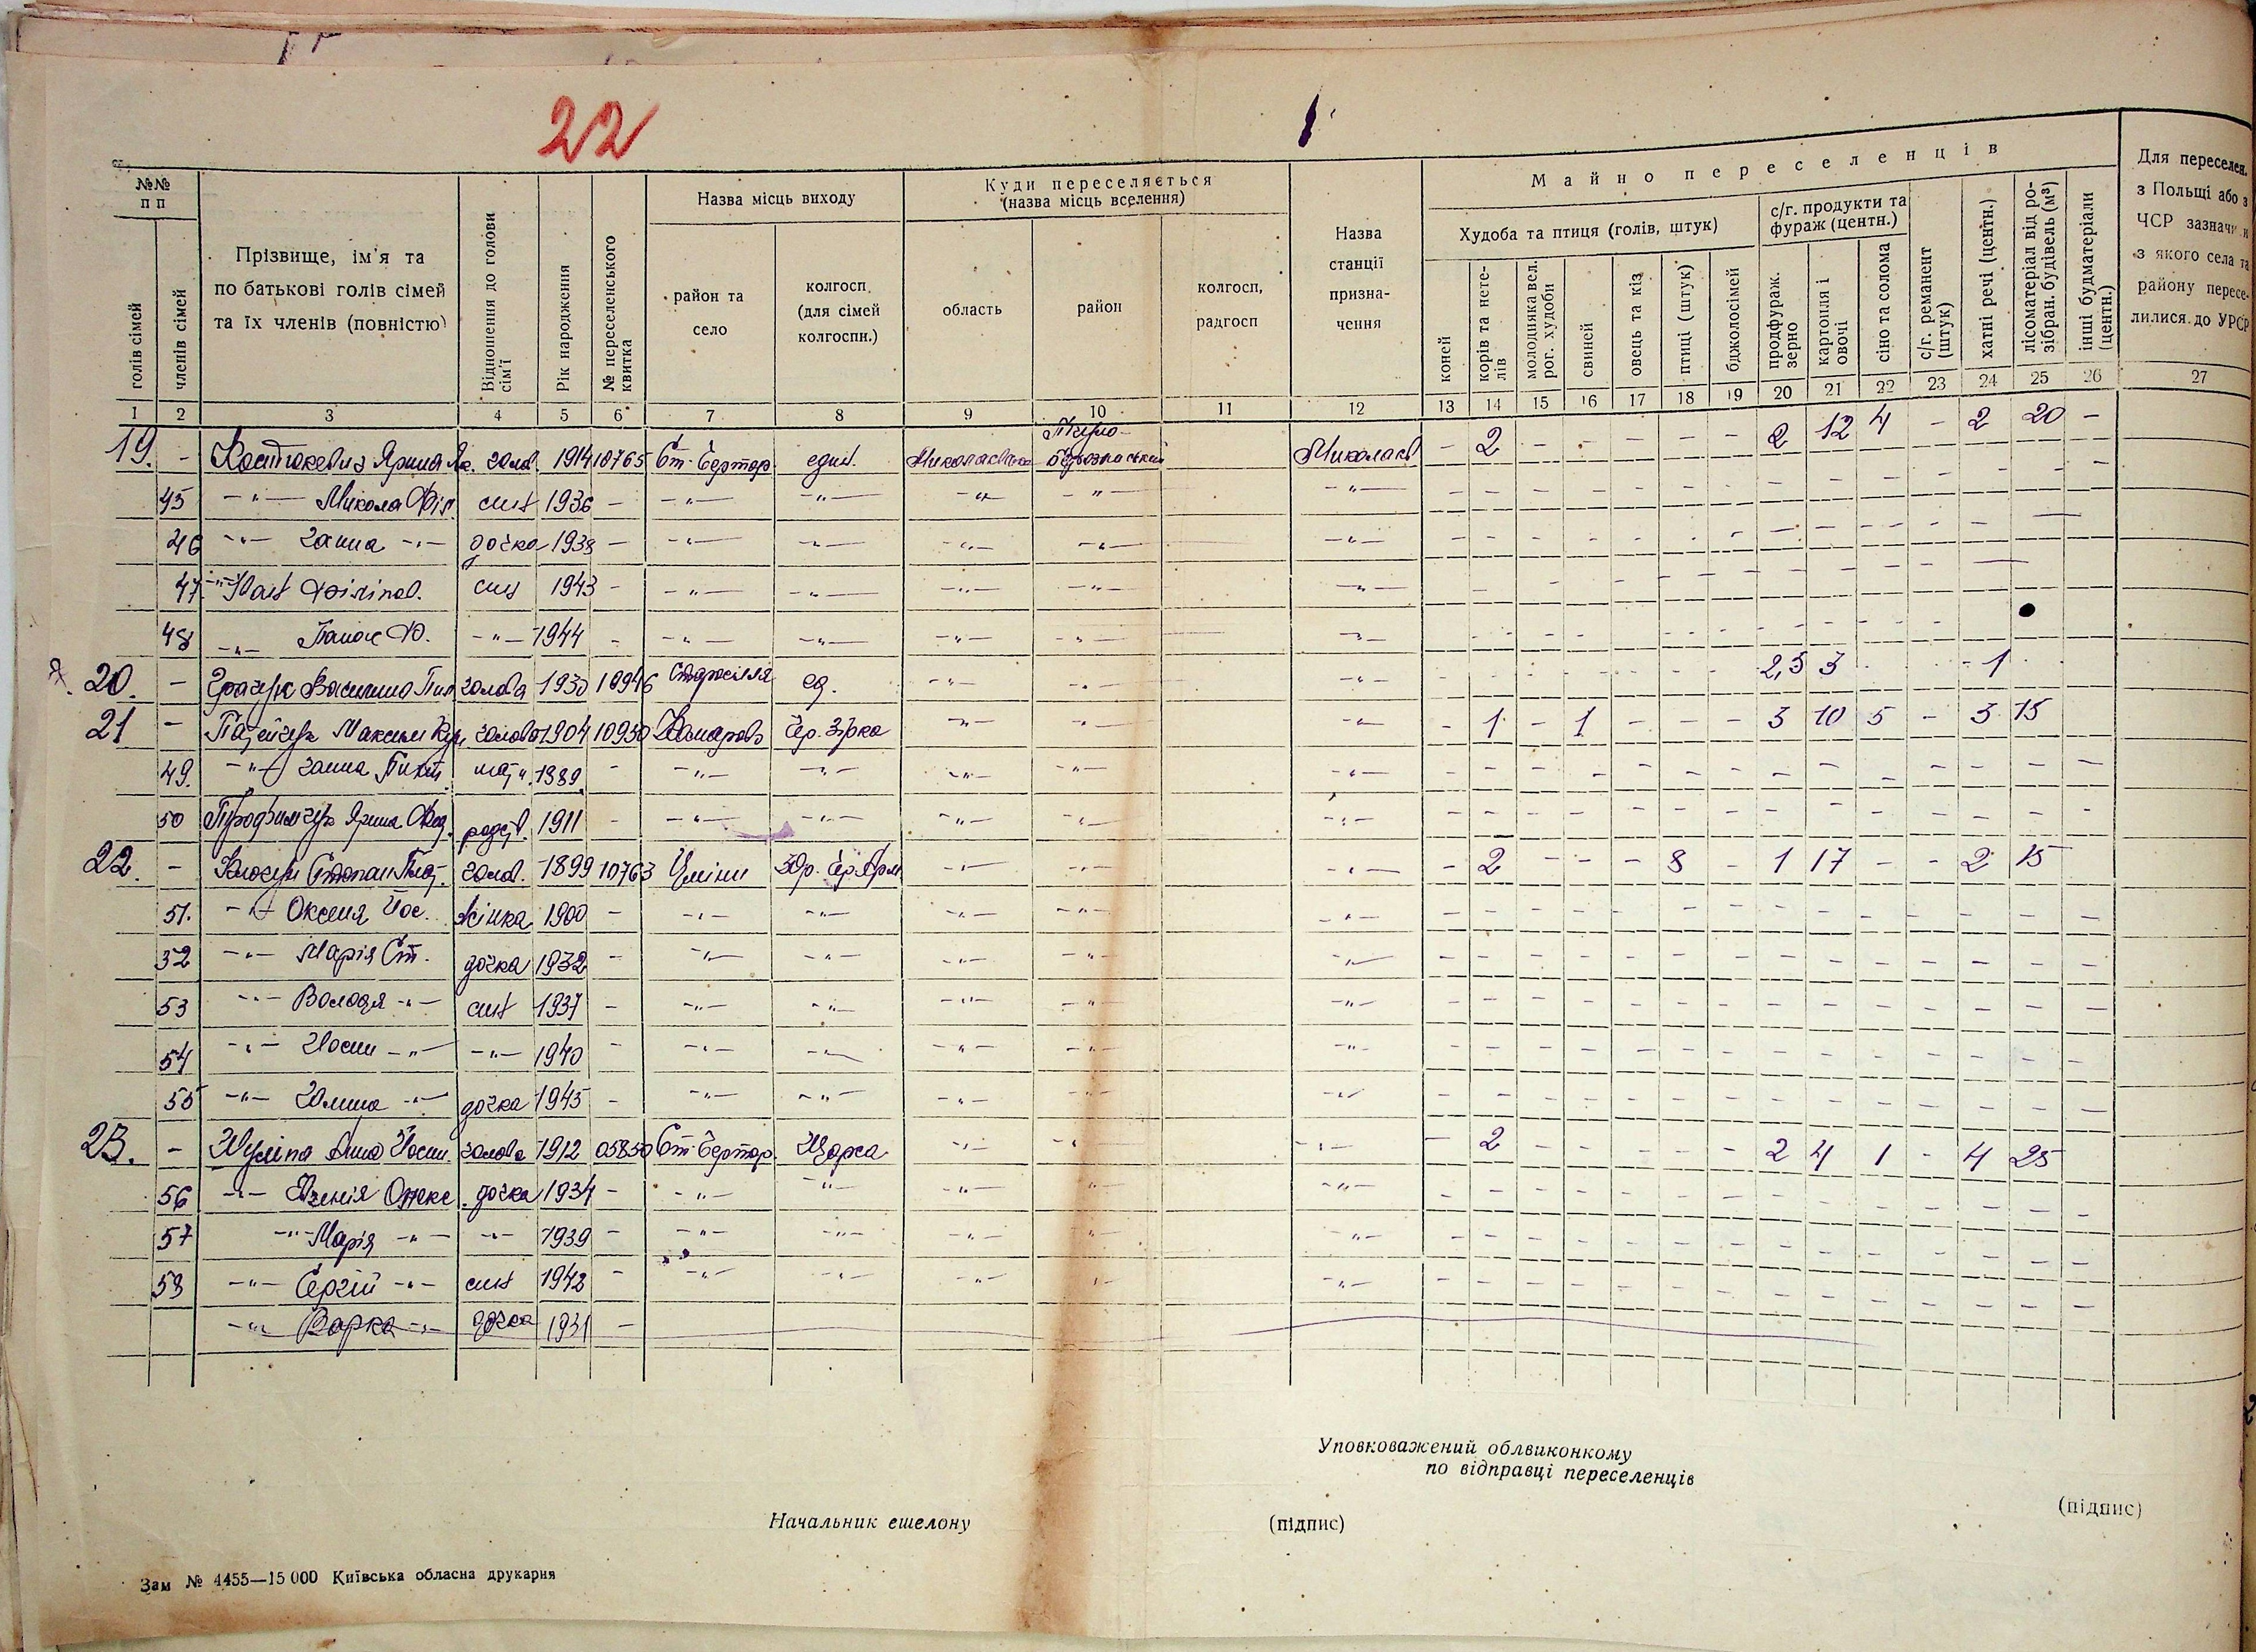 22
№№ п п
голів сімей
членів сімей
Прізвище, ім'я та по батькові голів сімей та їх членів (повністю)
Відношення до голови сім'ї
Рік народження
№ переселенського квитка
Назва місць виходу
район та село
колгосп (для сімей колгоспн.)
Куди переселяється (назва місць вселення)
область
район
колгосп, радгосп
Назва станції призначення
Майно переселенців
Худоба та птиця (голів, штук)
коней
корів та нетелів
молодняка вел. рог. худоби
свиней
овець та кіз
птиці (штук)
бджолосімей
с/г. продукти та фураж (центн.)
продфураж. зерно
картопля і овочі
сіно та солома
с/г. реманент (штук)
хатні речі (центн.)
лісоматеріал від розібран. будівель (м³)
інші будматеріали (центн.)
Для переселен. з Польщі або з ЧСР зазначи и з якого села та району переселилися до УРСР
1 2 3 4 5 6 7 8 9 10 11 12 13 14 15 16 17 18 19 20 21 22 23 24 25 26 27
19. - Костюкевич Ярина Як. голов. 1914 10765 Ст-Чертор един. Миколаїв - 2 - - - - - 2 12 4 - 2 20 -
45 -"- Микола Філ. син 1936 -
46 -"- Ганна -"- дочка 1938 -
47 -"- Іван Філіпов. син 1943 -
48 -"- Ф. -"- 1944 -
20. - Василина голова 1930 10946 Старосілля ед. -"- -"- -"- 2,5 3 - 1
21 - Максим голова 1904 10950 Комарово Чер. Зірка -"- -"- -"- - 1 - 1 - - - 3 10 5 - 3 15
49. -"- Ганна 1889 -
50 Ярина Фед. родст. 1911 -
22. - Степан голов. 1899 10763 Цміни -"- -"- -"- - 2 - - - 8 - 1 17 - - 2 15
51. -"- Оксеня Йос. жінка 1900 -
52 -"- Марія Ст. дочка 1932 -
53 -"- Володя -"- син 1937 -
54 -"- -"- -"- 1940 -
55 -"- Галина -"- дочка 1945 -
23. - Йосип. голова 1912 05850 Ст-Чертор -"- -"- -"- - 2 - - - - - 2 4 1 - 4 25
56 -"- Євгенія дочка 1934 -
57 -"- Марія -"- -"- 1939 -
58 -"- Сергій -"- син 1942 -
-"- Варка -"- дочка 1931 -
Уповковажений облвиконкому
по відправці переселенців
Начальник ешелону
(підпис)
(підпис)
Зам № 4455—15 000 Київська обласна друкарня